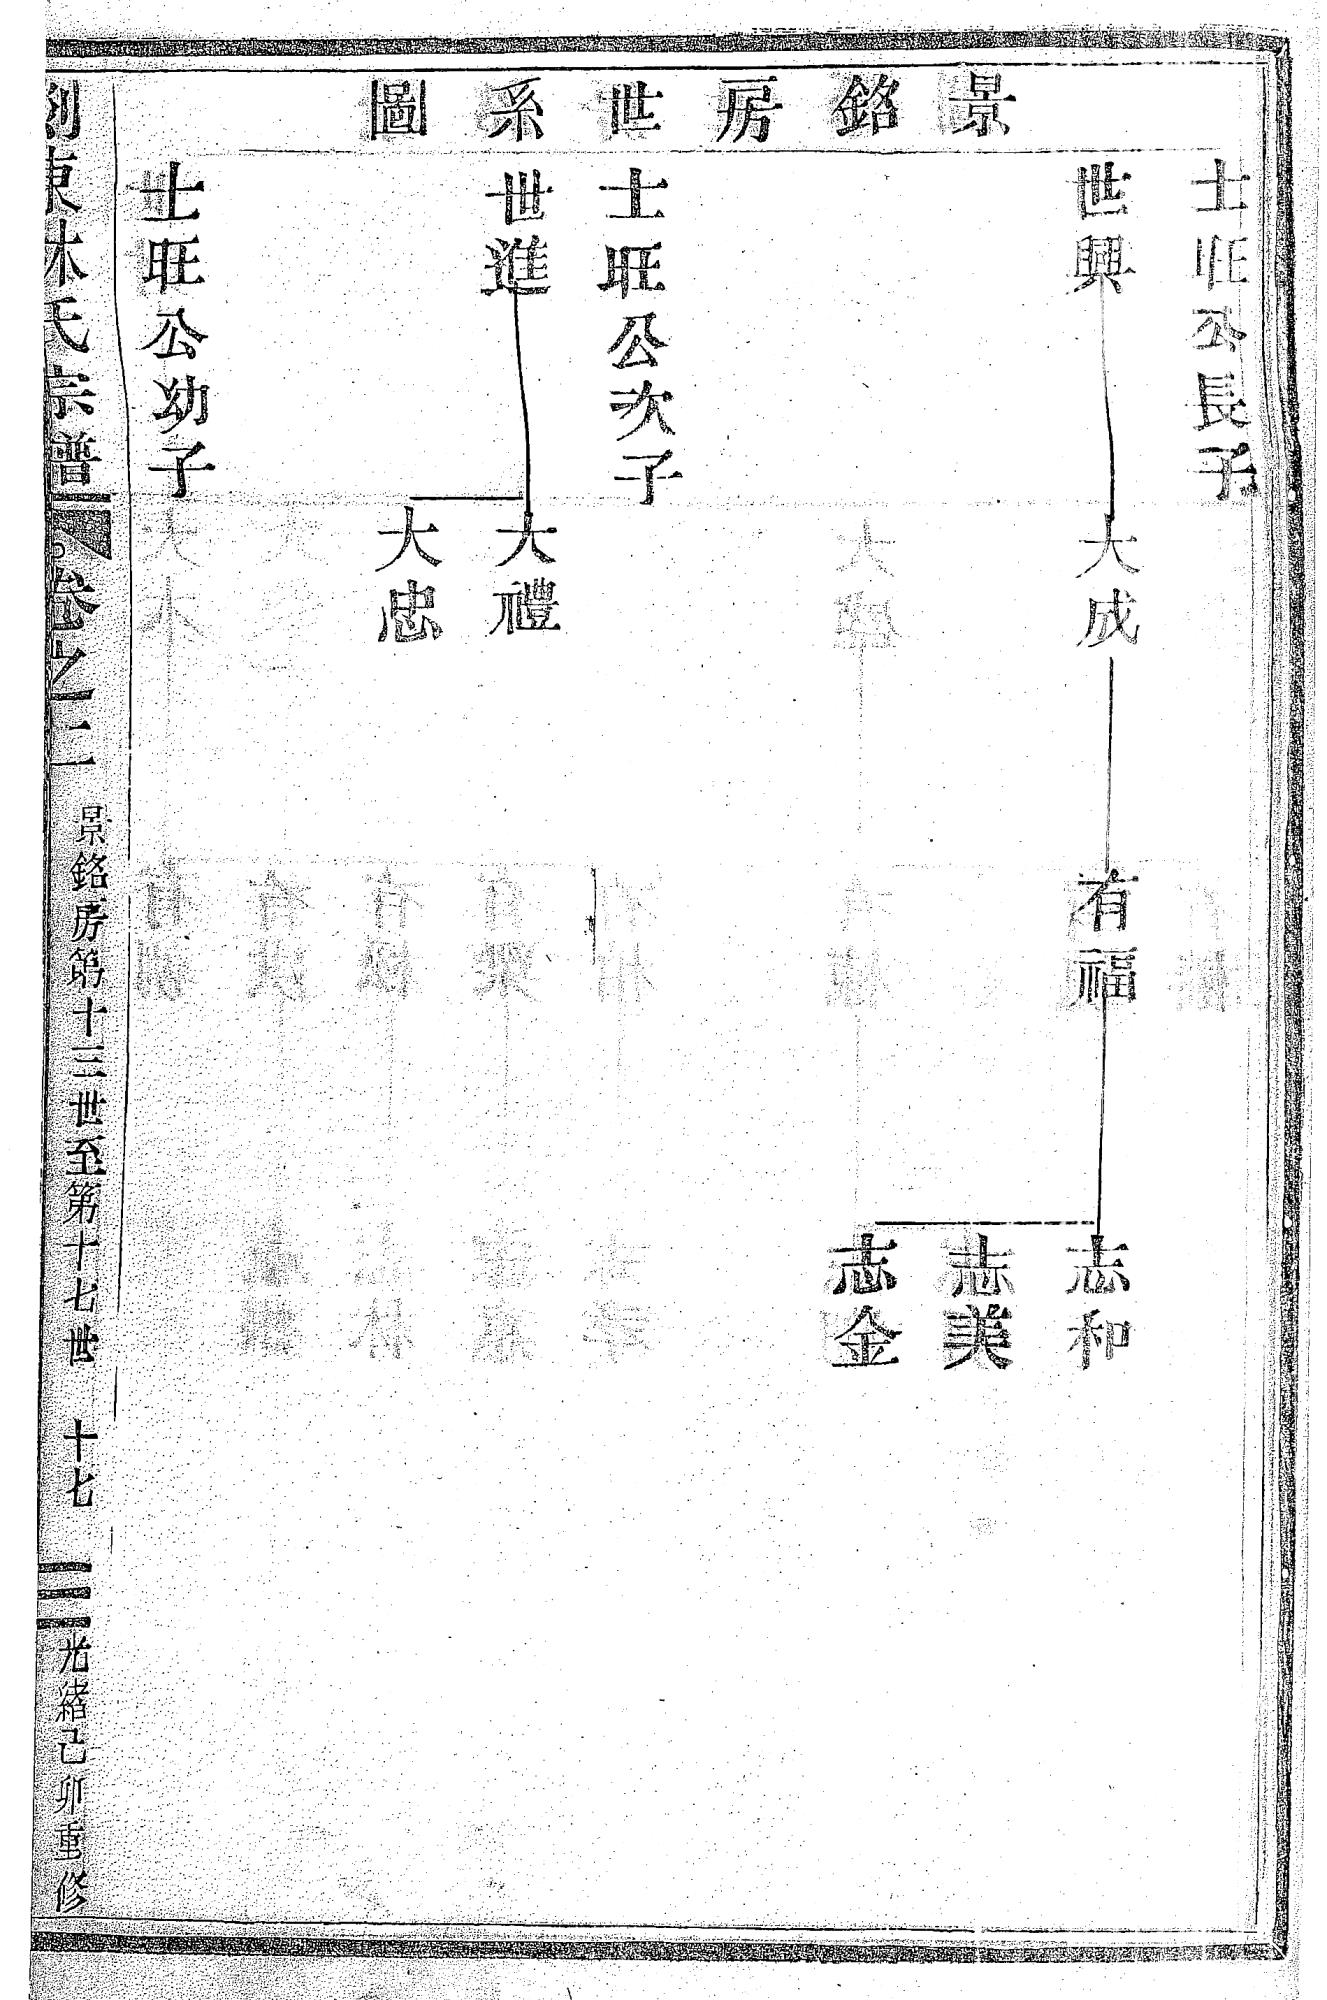 景銘房世系圖
士旺公長子
世興
大成
有福
志和
志美
志金
士旺公次子
世進
大禮
大忠
士旺公幼子
東林氏宗譜
卷之二
景銘房第十三世至第十七世
十七
光緒己卯重修